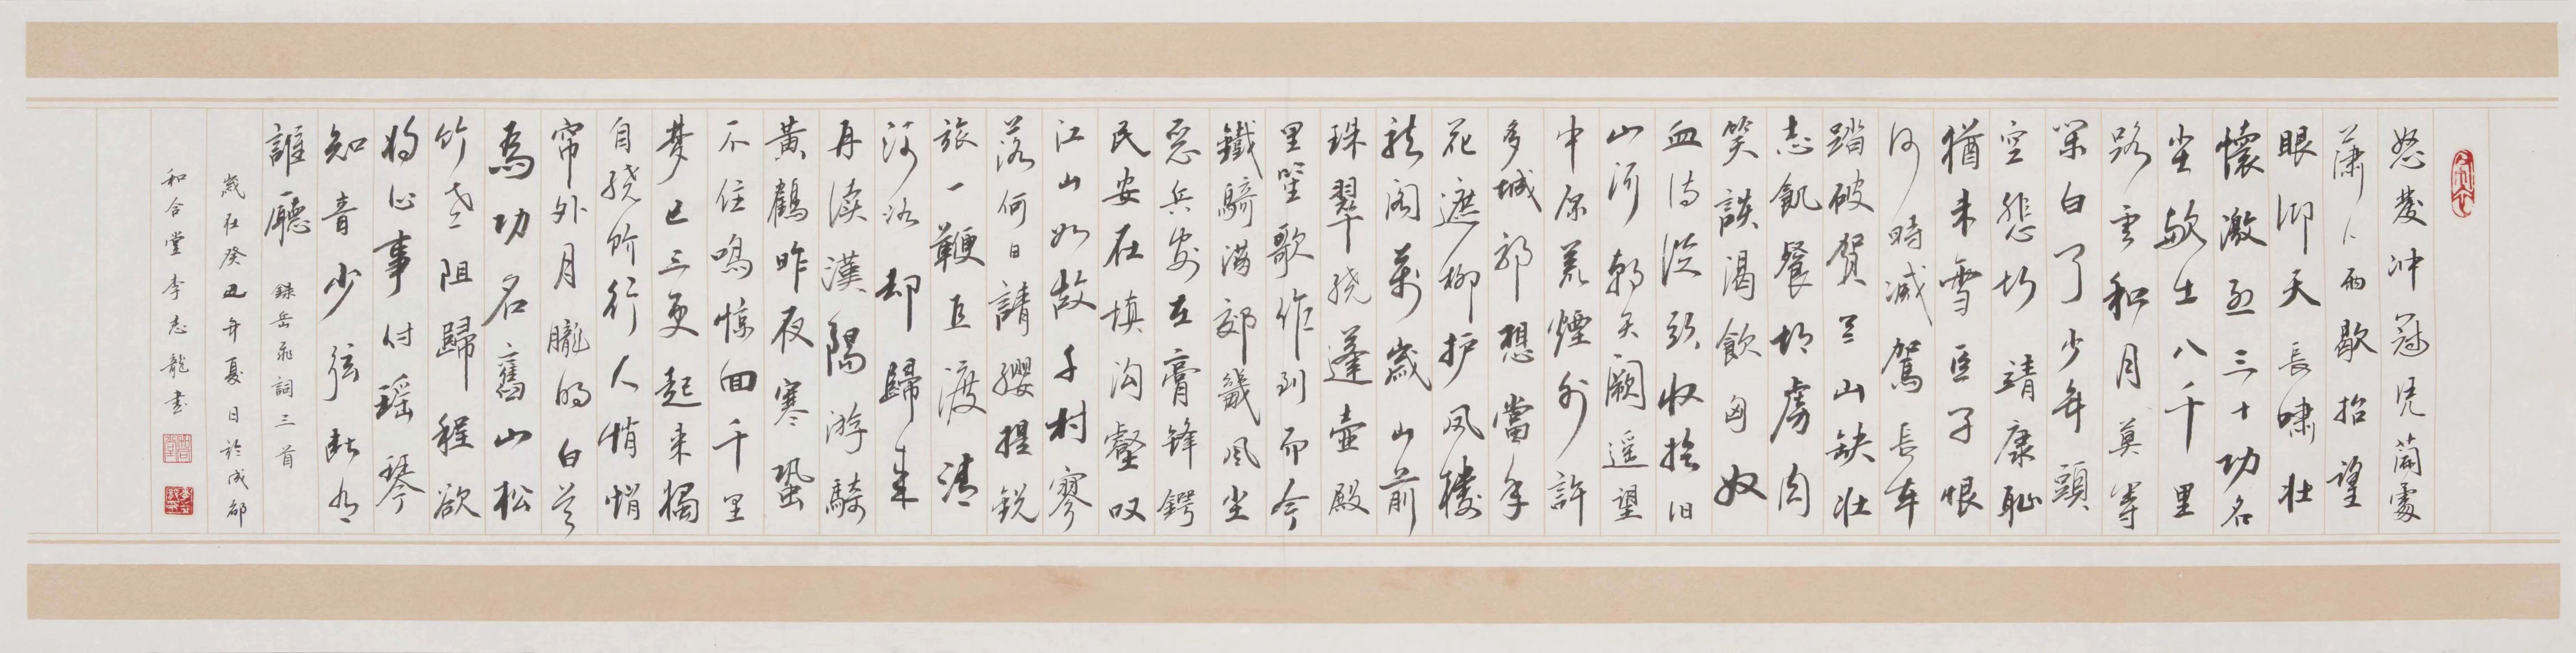 怒髮冲冠凭闌處
蕭々雨歇抬望
眼仰天長嘯壯
懷激烈三十功名
尘與土八千里
路雲和月莫等
閑白了少年頭
空悲切靖康恥
猶未雪臣子恨
何時滅駕長車
踏破賀兰山缺壯
志飢餐胡虜肉
笑談渴飲匈奴
血待從頭收拾旧
山河朝天闕遥望
中原荒煙外許
多城郭想當年
花遮柳护凤樓
龍阁萬歲山前
珠翠绕蓬壺殿
里笙歌作到而今
鐵騎满郊畿風尘
惡兵安在膏鋒鍔
民安在填沟壑叹
江山如故千村寥
落何日請纓提銳
旅一鞭直渡清
河洛却歸来
再续漢陽游騎
黃鶴昨夜寒蛩
不住鳴惊回千里
梦已三更起来獨
自绕阶行人悄悄
帘外月朧明白首
為功名舊山松
竹老阻歸程欲
将心事付瑶琴
知音少弦断有
誰聽 錄岳飛詞三首
歲在癸丑年夏日於成都
和合堂李志龍書